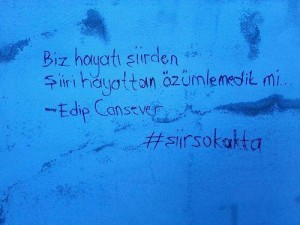 Biz hayatı şiirden
Şiiri hayattan özümlemedik mi...
-Edip Cansever
#siirsokakta